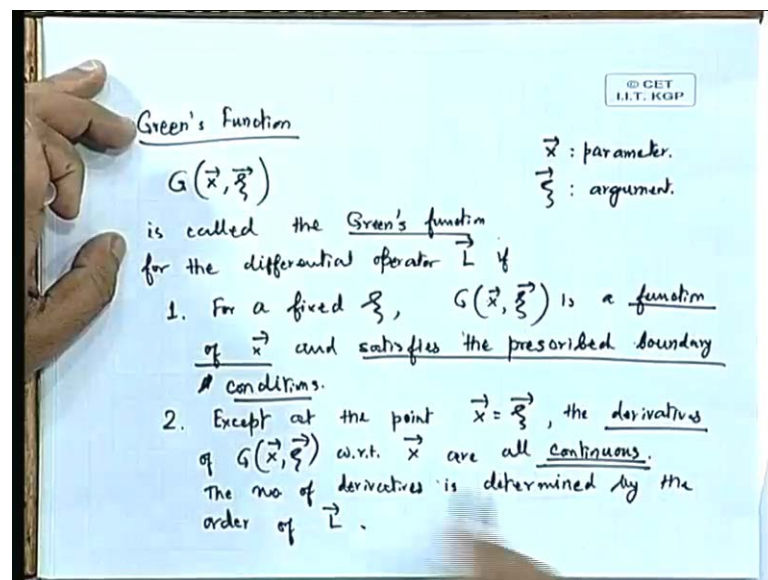 © CET
I.I.T. KGP
Green's Function
G(x⃗, ξ⃗)
x⃗ : parameter.
ξ⃗ : argument.
is called the Green's function
for the differential operator L⃗ if
1. For a fixed ξ, G(x⃗, ξ⃗) is a function
of x⃗ and satisfies the prescribed boundary
conditions.
2. Except at the point x⃗ = ξ⃗, the derivatives
of G(x⃗, ξ⃗) w.r.t. x⃗ are all continuous.
The no of derivatives is determined by the
order of L⃗.